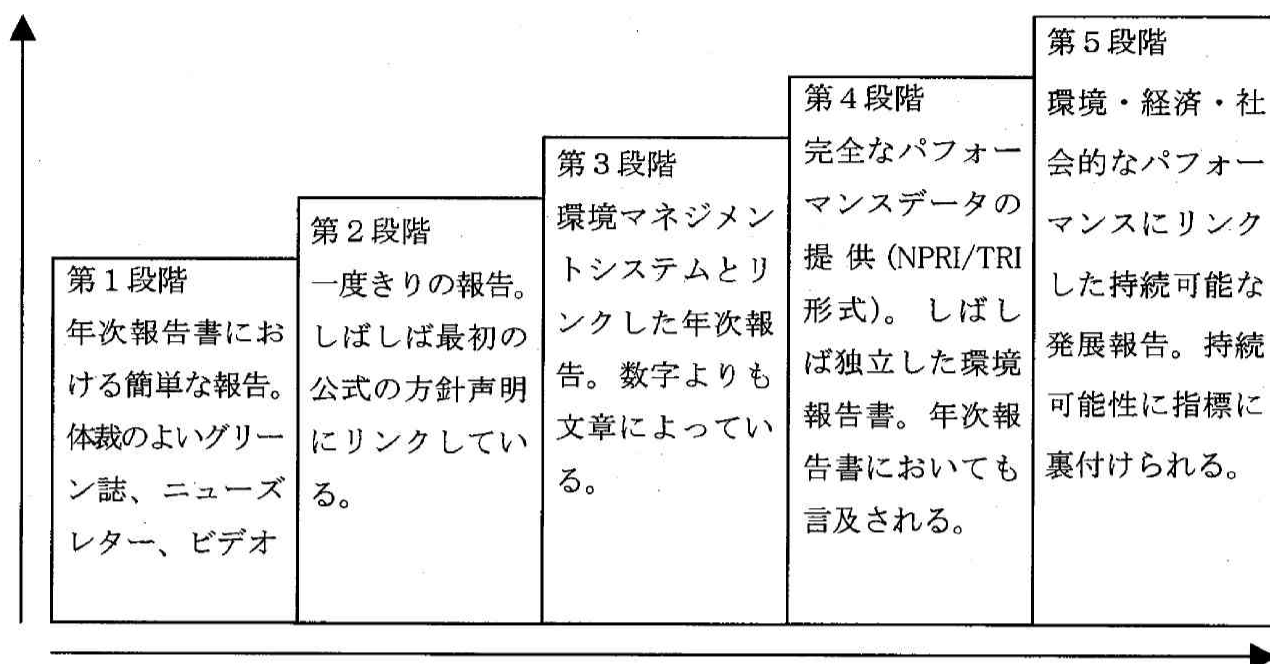 第1段階
年次報告書にお
ける簡単な報告。
体裁のよいグリー
ン誌、ニューズ
レター、ビデオ
第2段階
一度きりの報告。
しばしば最初の
公式の方針声明
にリンクしてい
る。
第3段階
環境マネジメン
トシステムとリ
ンクした年次報
告。数字よりも
文章によってい
る。
第4段階
完全なパフォー
マンスデータの
提供(NPRI/TRI
形式)。しばし
ば独立した環境
報告書。年次報
告書においても
言及される。
第5段階
環境・経済・社
会的なパフォー
マンスにリンク
した持続可能な
発展報告。持続
可能性に指標に
裏付けられる。